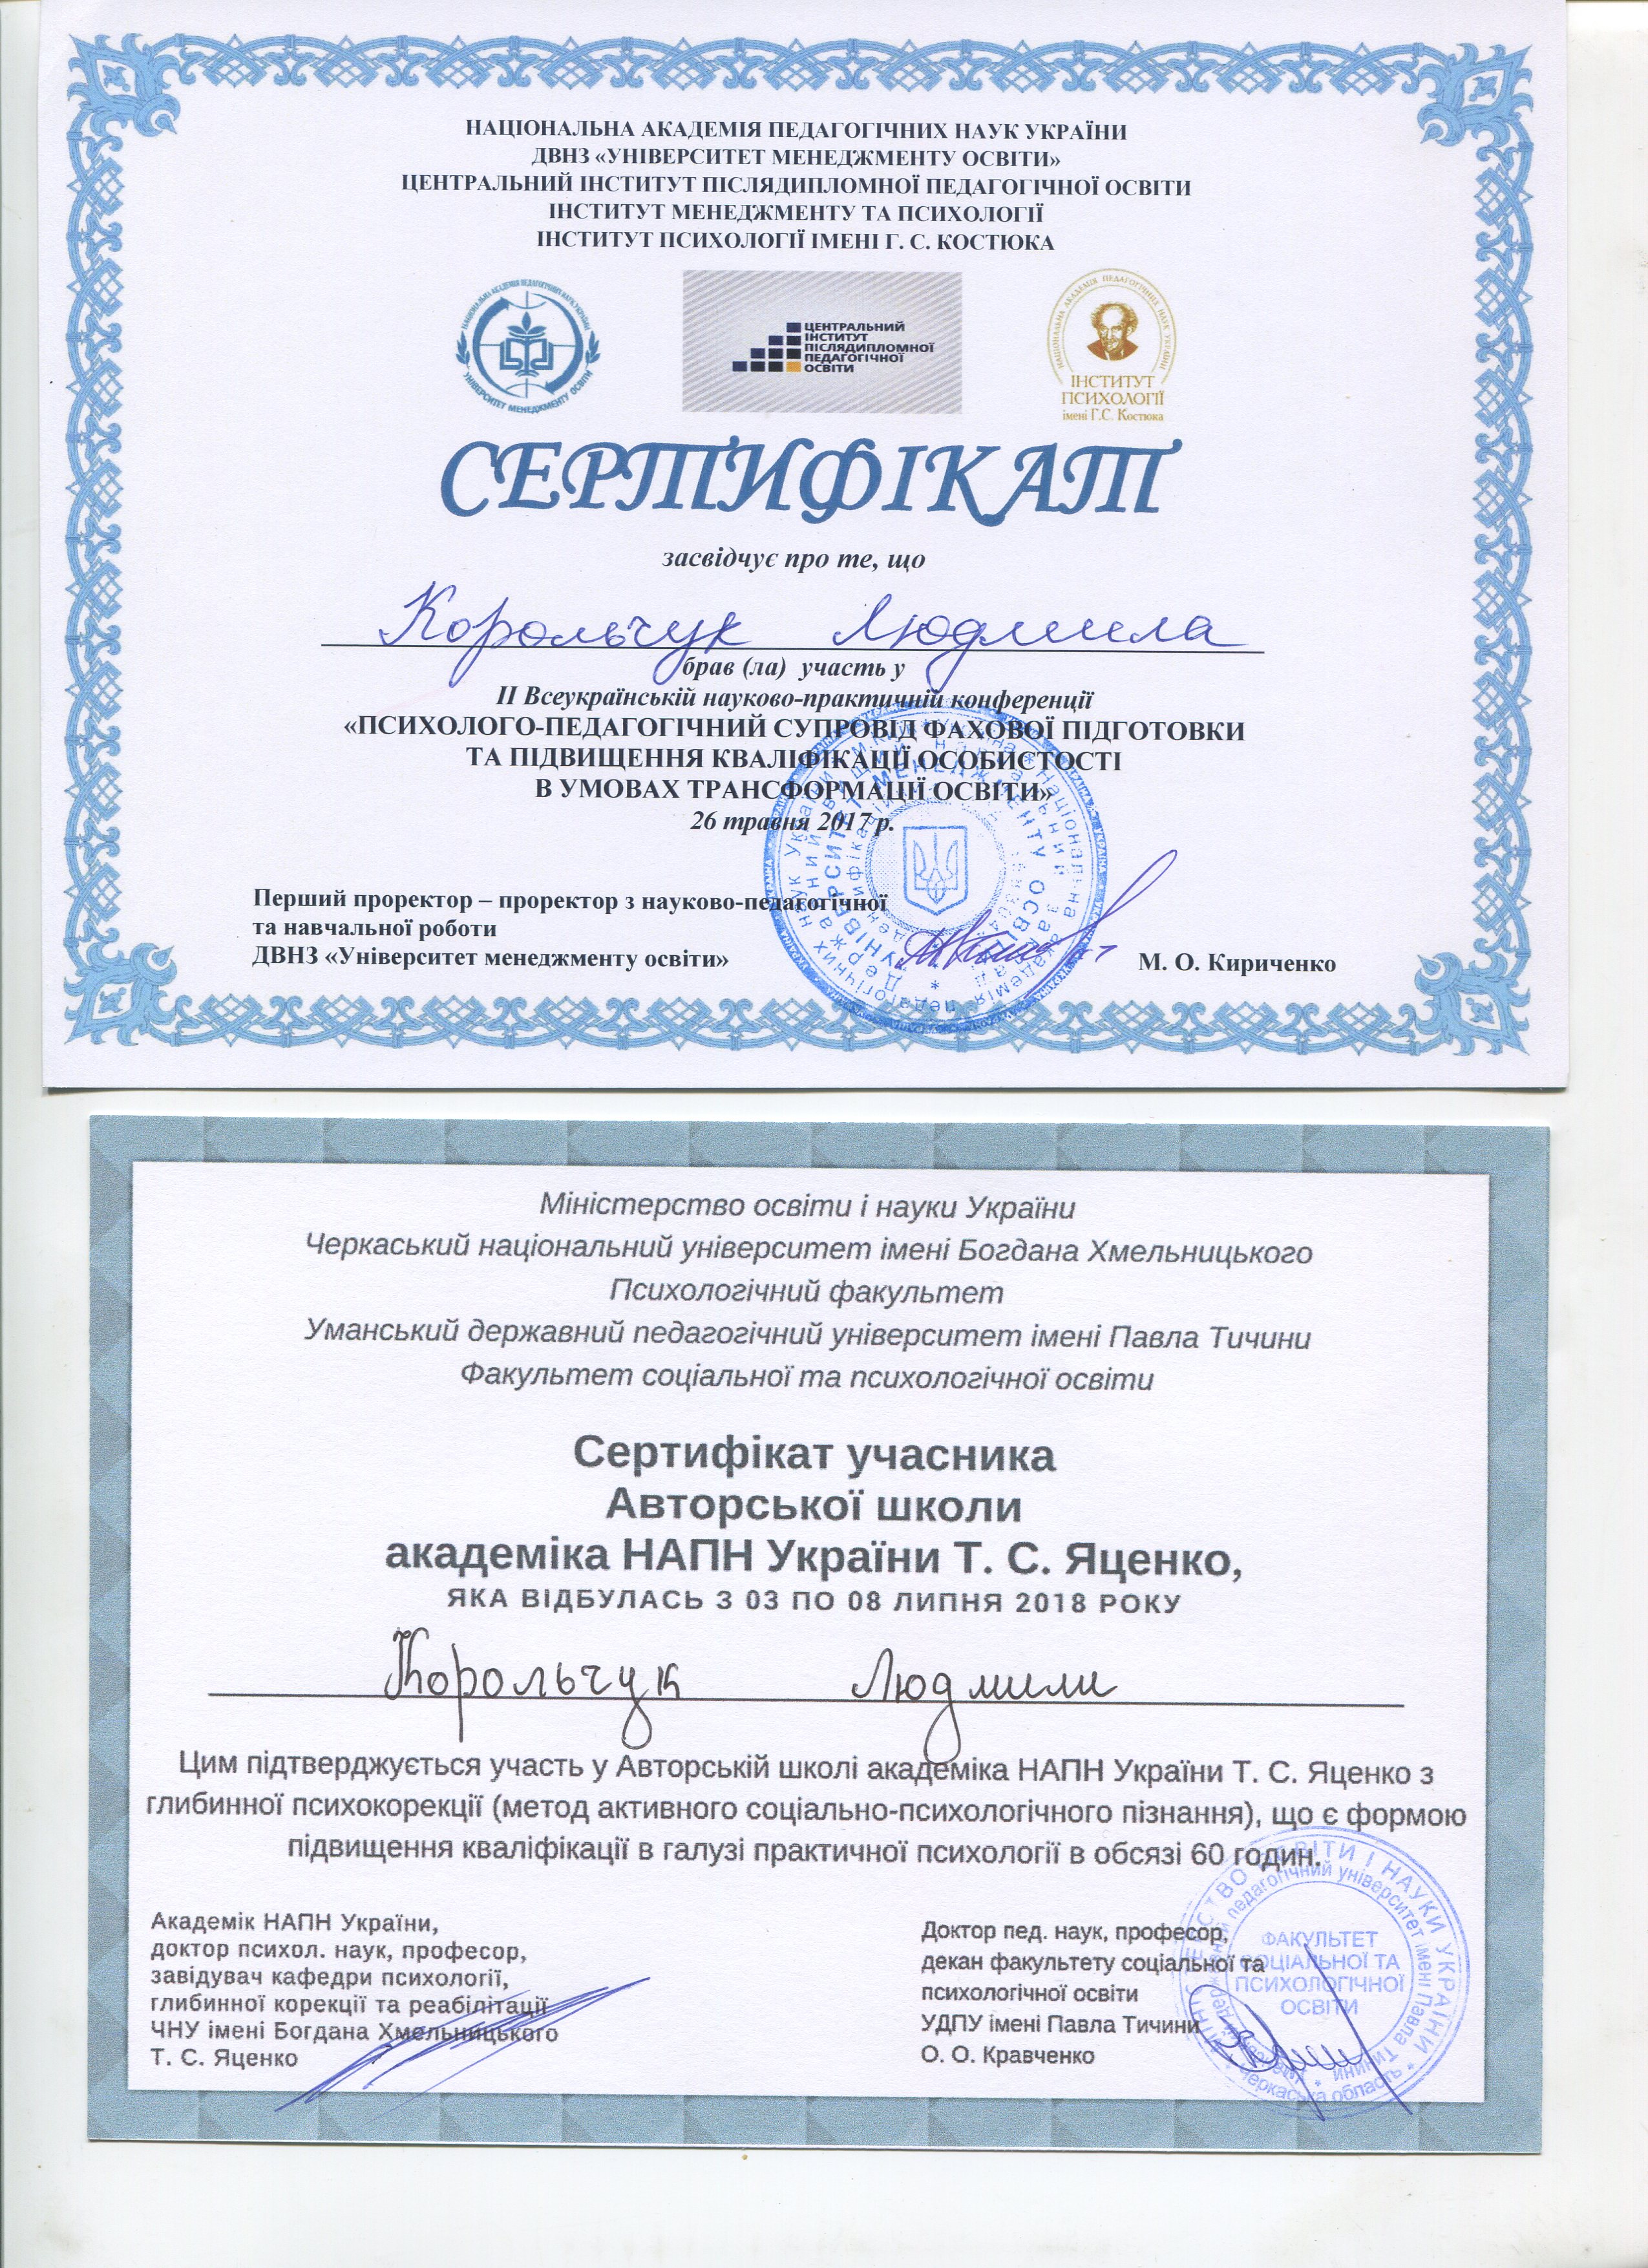 НАЦІОНАЛЬНА АКАДЕМІЯ ПЕДАГОГІЧНИХ НАУК УКРАЇНИ
ДВНЗ «УНІВЕРСИТЕТ МЕНЕДЖМЕНТУ ОСВІТИ»
ЦЕНТРАЛЬНИЙ ІНСТИТУТ ПІСЛЯДИПЛОМНОЇ ПЕДАГОГІЧНОЇ ОСВІТИ
ІНСТИТУТ МЕНЕДЖМЕНТУ ТА ПСИХОЛОГІЇ
ІНСТИТУТ ПСИХОЛОГІЇ ІМЕНІ Г. С. КОСТЮКА
НАЦІОНАЛЬНА АКАДЕМІЯ ПЕДАГОГІЧНИХ НАУК УКРАЇНИ
УНІВЕРСИТЕТ МЕНЕДЖМЕНТУ ОСВІТИ
ЦЕНТРАЛЬНИЙ
ІНСТИТУТ
ПІСЛЯДИПЛОМНОЇ
ПЕДАГОГІЧНОЇ
ОСВІТИ
НАЦІОНАЛЬНА АКАДЕМІЯ ПЕДАГОГІЧНИХ НАУК УКРАЇНИ
ІНСТИТУТ
ПСИХОЛОГІЇ
імені Г.С. Костюка
СЕРТИФІКАТ
засвідчує про те, що
Корольчук Людмила
брав (ла) участь у
ІІ Всеукраїнській науково-практичній конференції
«ПСИХОЛОГО-ПЕДАГОГІЧНИЙ СУПРОВІД ФАХОВОЇ ПІДГОТОВКИ
ТА ПІДВИЩЕННЯ КВАЛІФІКАЦІЇ ОСОБИСТОСТІ
В УМОВАХ ТРАНСФОРМАЦІЇ ОСВІТИ»
26 травня 2017 р.
Перший проректор – проректор з науково-педагогічної
та навчальної роботи
ДВНЗ «Університет менеджменту освіти»
М. О. Кириченко
Міністерство освіти і науки України
Черкаський національний університет імені Богдана Хмельницького
Психологічний факультет
Уманський державний педагогічний університет імені Павла Тичини
Факультет соціальної та психологічної освіти
Сертифікат учасника
Авторської школи
академіка НАПН України Т. С. Яценко,
ЯКА ВІДБУЛАСЬ З 03 ПО 08 ЛИПНЯ 2018 РОКУ
Корольчук Людмили
Цим підтверджується участь у Авторській школі академіка НАПН України Т. С. Яценко з
глибинної психокорекції (метод активного соціально-психологічного пізнання), що є формою
підвищення кваліфікації в галузі практичної психології в обсязі 60 годин.
Академік НАПН України,
доктор психол. наук, професор,
завідувач кафедри психології,
глибинної корекції та реабілітації
ЧНУ імені Богдана Хмельницького
Т. С. Яценко
Доктор пед. наук, професор,
декан факультету соціальної та
психологічної освіти
УДПУ імені Павла Тичини
О. О. Кравченко
ФАКУЛЬТЕТ
СОЦІАЛЬНОЇ ТА
ПСИХОЛОГІЧНОЇ
ОСВІТИ